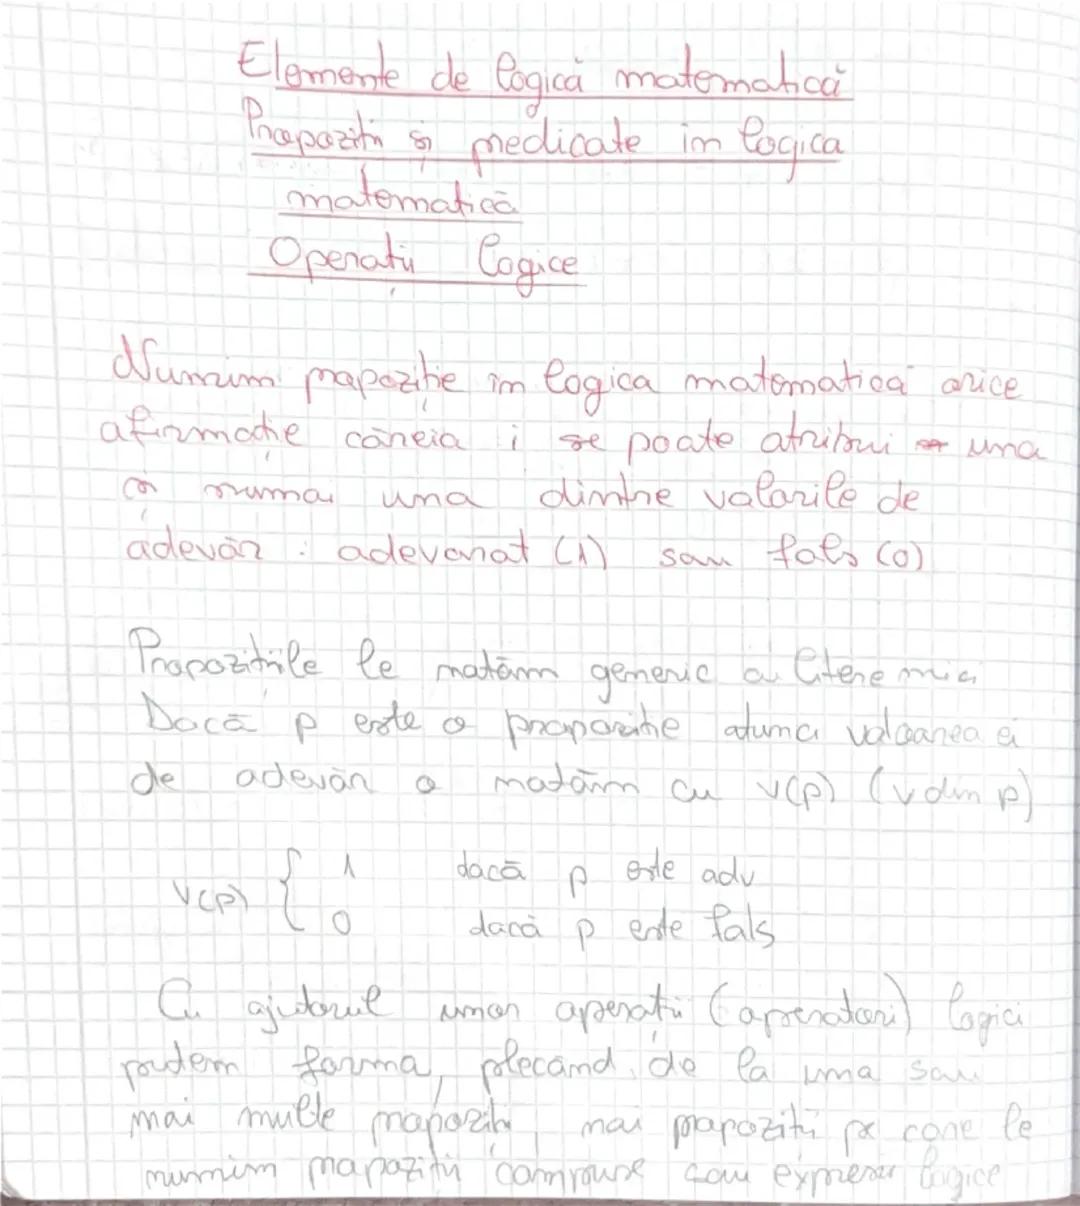 Elemente de logică matematică
Propoziții și predicate în logica
matematică
Operații logice
Numim propoziție în logica matematică orice
afirmație căreia i se poate atribui una
și numai una dintre valorile de
adevăr : adevărat (1) sau fals (0)
Propozițiile le notăm generic cu litere mici
Dacă p este o propoziție atunci valoarea ei
de adevăr o notăm cu v(p) (v din p)
v(p) { 1 dacă p este adv
0 dacă p este fals
Cu ajutorul unor operatii (operatori) logici
putem forma, plecând de la una sau
mai multe propoziții, noi propoziții pe care le
numim propoziții compuse sau expresii logice